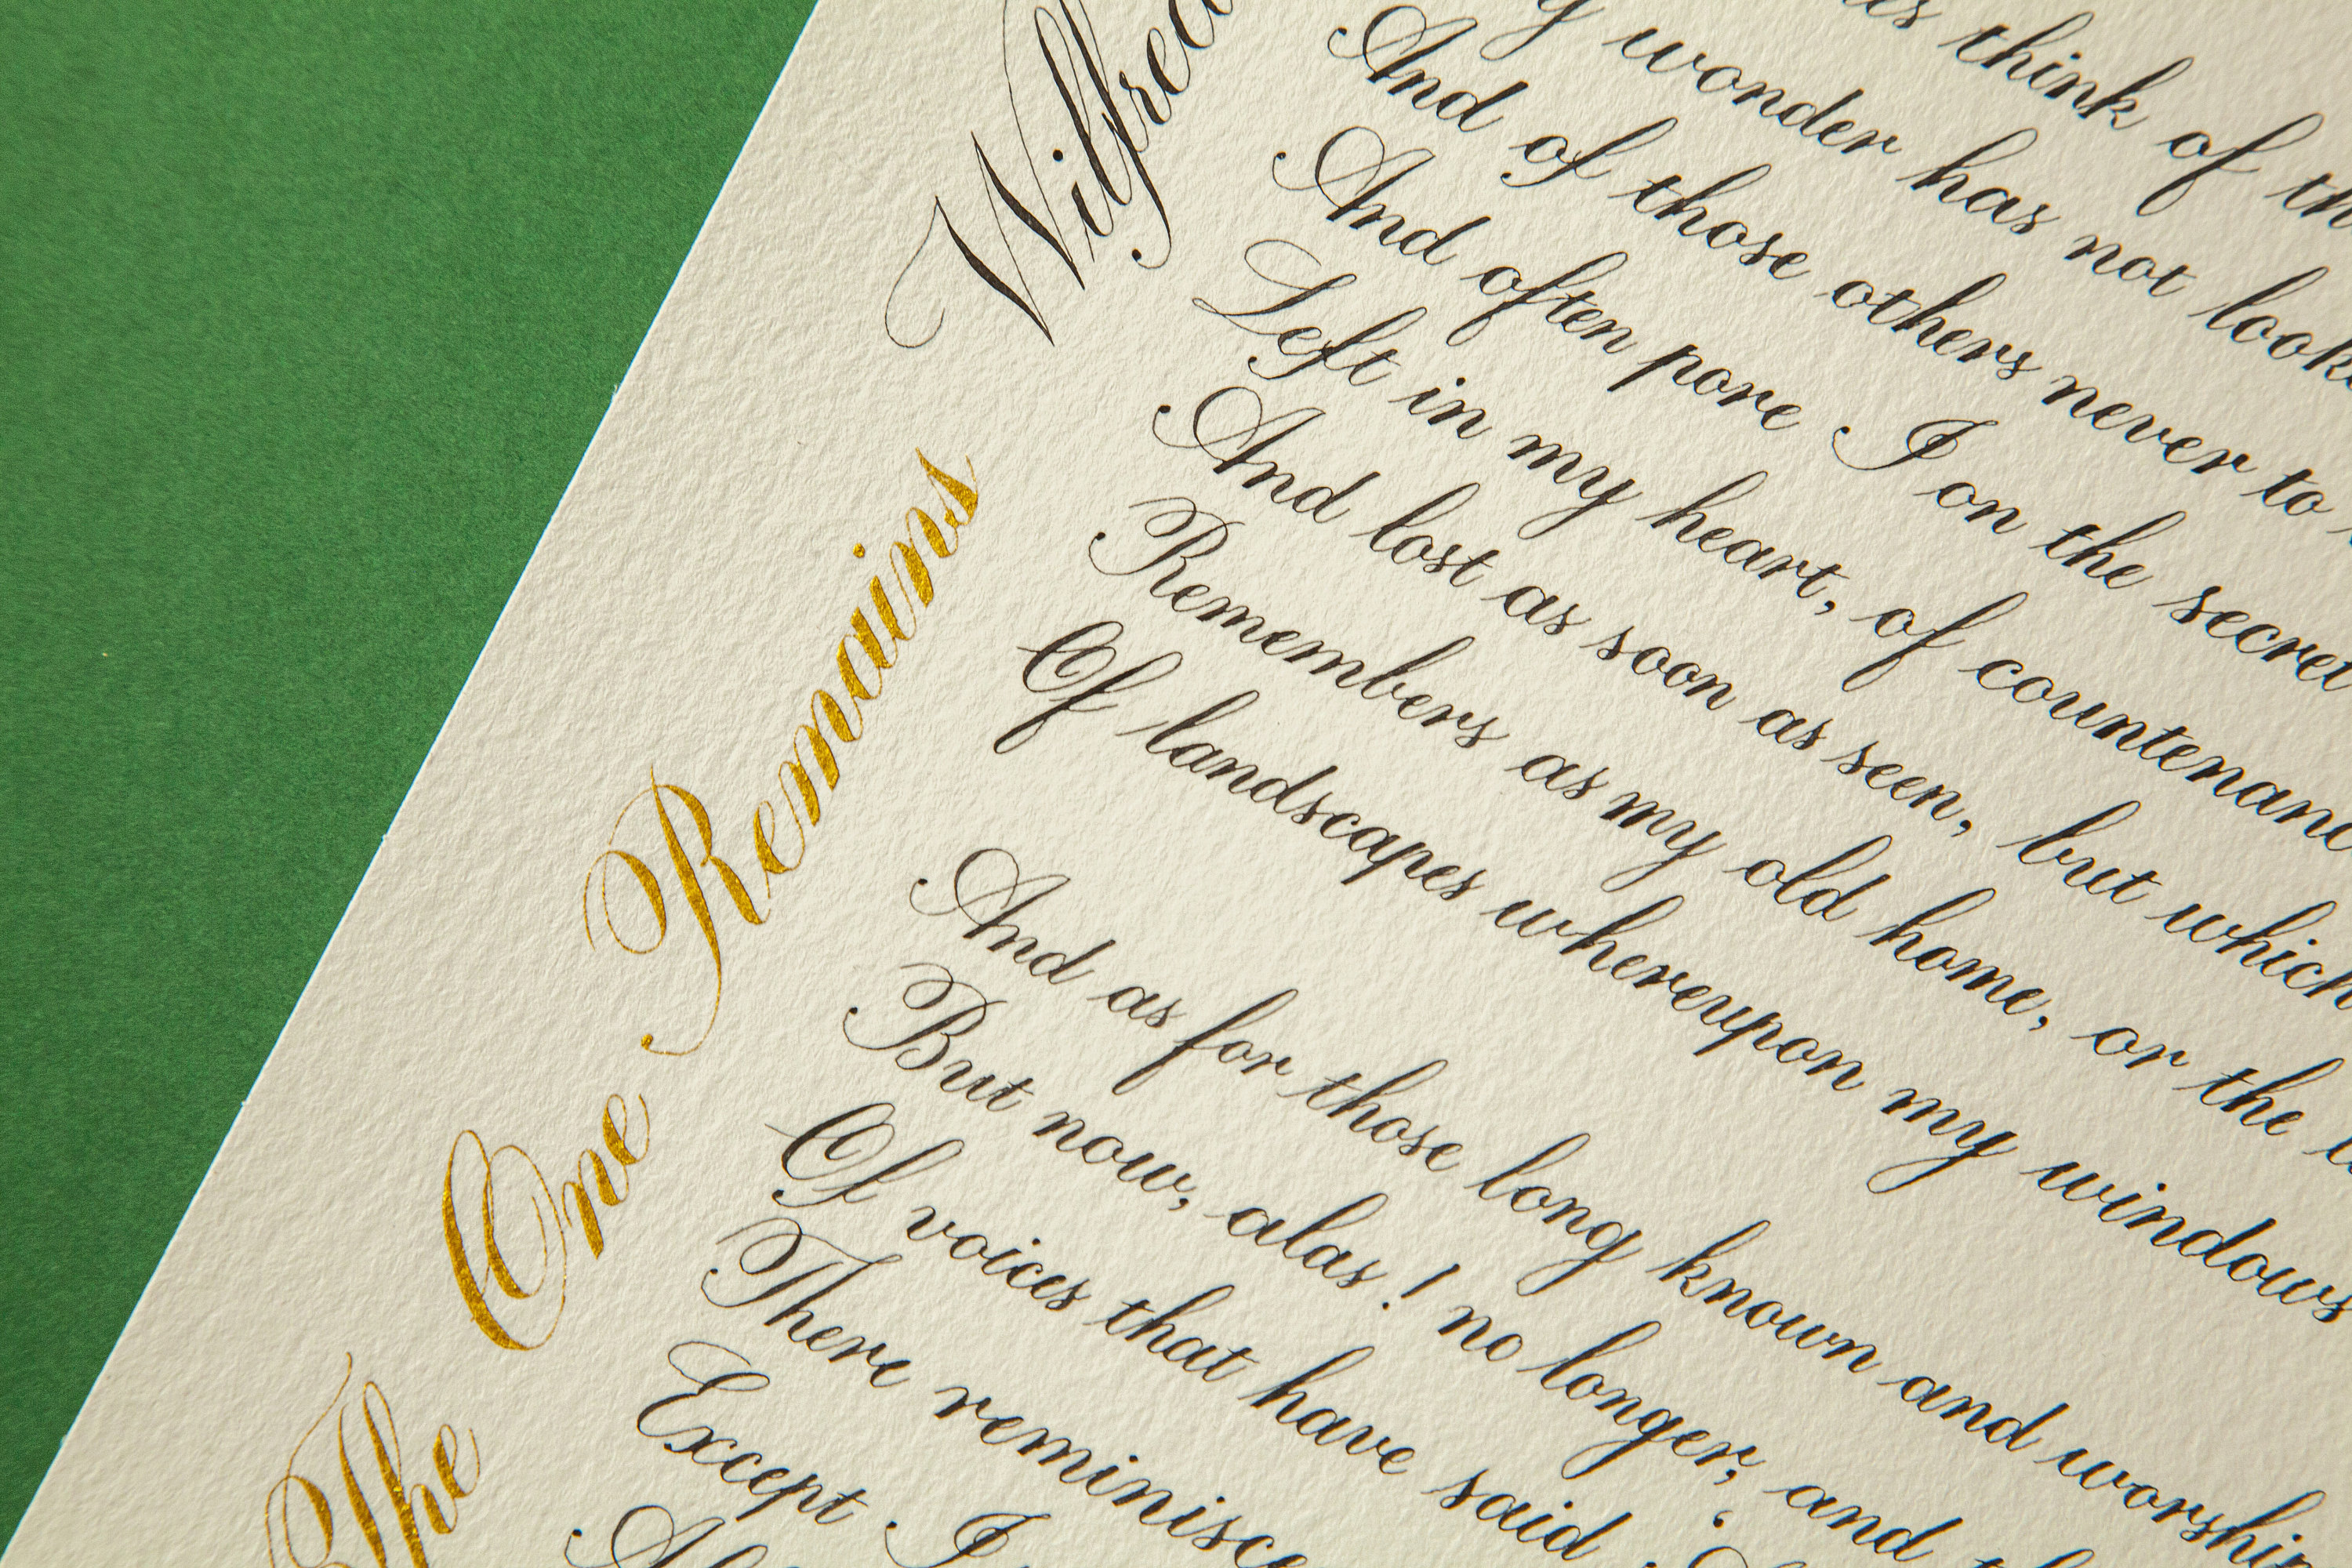 The One Remains
Wilfred
think of th
wonder has not look
And of those others never to
And often pore I on the secret
Left in my heart, of countenanc
And lost as soon as seen, but which
Remembers as my old home, or the
Of landscapes whereupon my windows
And as for those long known and worship
But now, alas! no longer, and
Of voices that have said
There reminisce
Except I